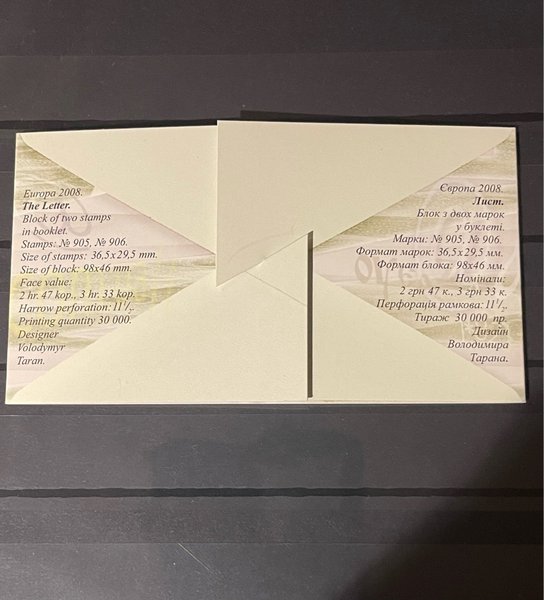 Europa 2008.
The Letter.
Block of two stamps
in booklet.
Stamps: № 905, № 906.
Size of stamps: 36,5x29,5 mm.
Size of block: 98x46 mm.
Face value:
2 hr. 47 kop., 3 hr. 33 kop.
Harrow perforation: 11 1/2.
Printing quantity 30 000.
Designer
Volodymyr
Taran.
Європа 2008.
Лист.
Блок з двох марок
у буклеті.
Марки: № 905, № 906.
Формат марок: 36,5x29,5 мм.
Формат блока: 98x46 мм.
Номінали:
2 грн 47 к., 3 грн 33 к.
Перфорація рамкова: 11 1/2.
Тираж 30 000 пр.
Дизайн
Володимира
Тарана.